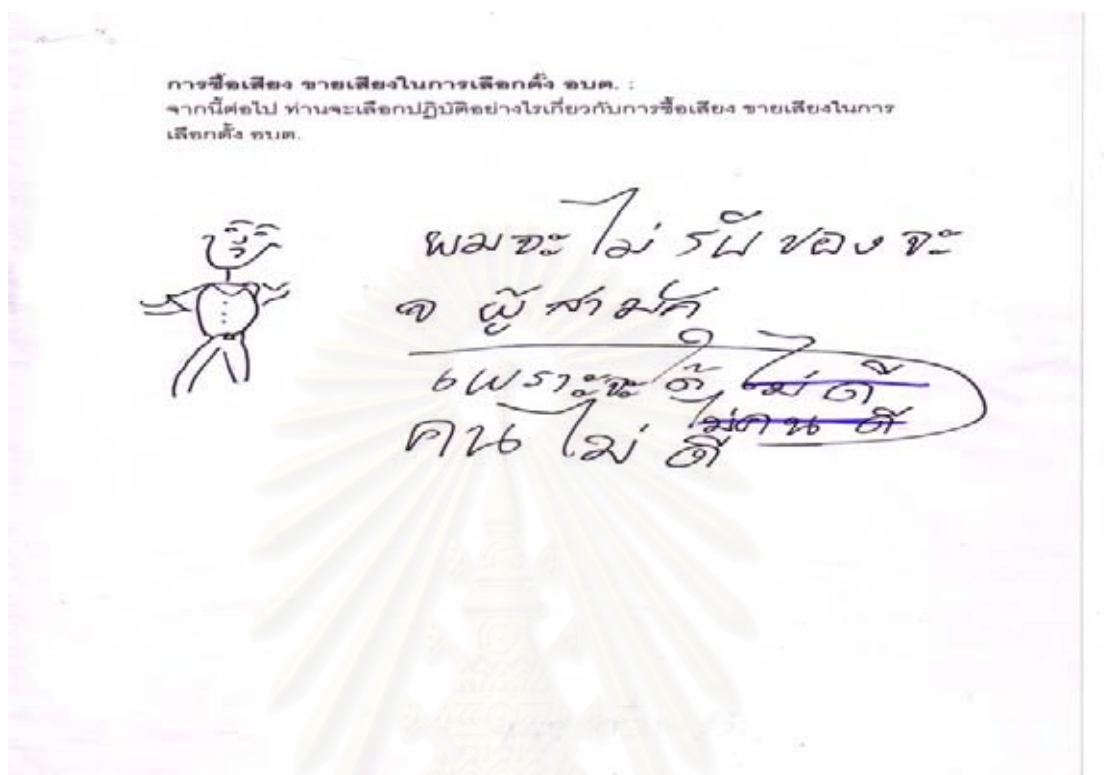 การซื้อเสียง ขายเสียงในการเลือกตั้ง อบต. :
จากนี้ต่อไป ท่านจะเลือกปฏิบัติอย่างไรเกี่ยวกับการซื้อเสียง ขายเสียงในการ
เลือกตั้ง อบต.
ผมจะ ไม่ รับ ของ จะ
จ ผู้ สามัค
เพราะจะ ได้ ไม่ ดี
ไม่คน ดี
คน ไม่ ดี